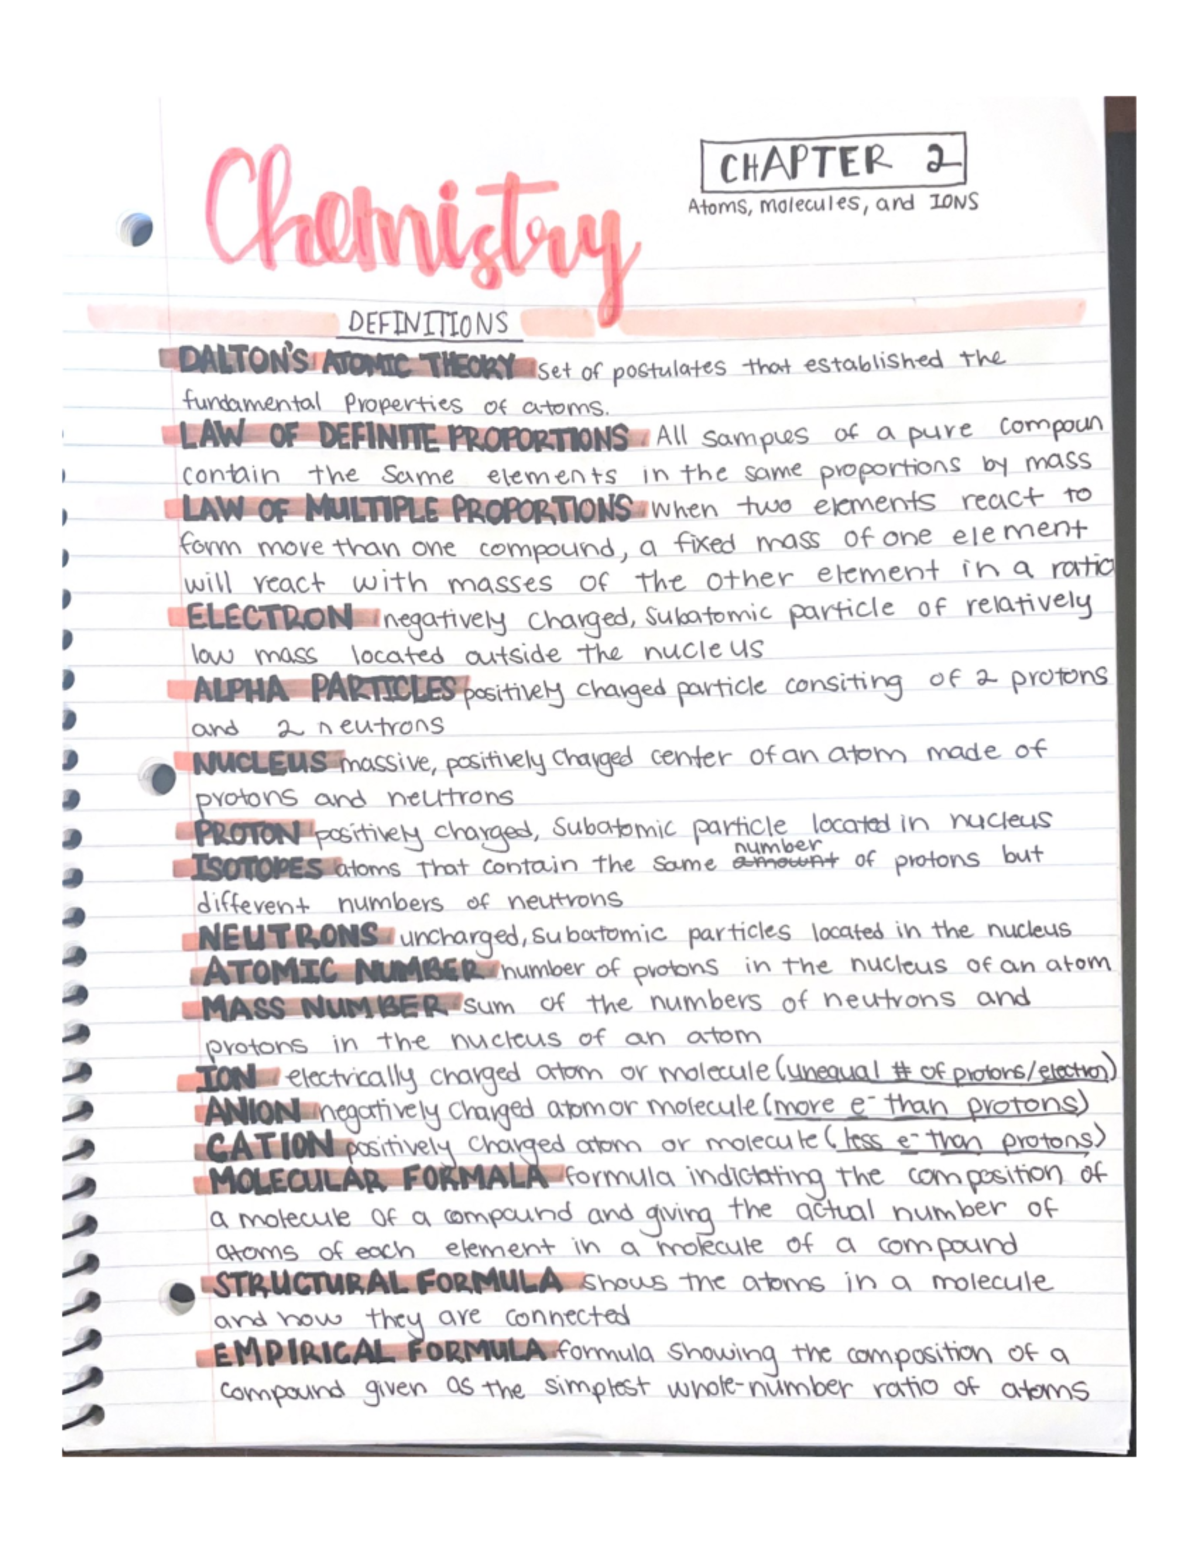 Chemistry
CHAPTER 2
Atoms, molecules, and IONS
DEFINITIONS
DALTON'S ATOMIC THEORY set of postulates that established the
fundamental Properties of atoms.
LAW OF DEFINITE PROPORTIONS All samples of a pure compoun
contain the same elements in the same proportions by mass
LAW OF MULTIPLE PROPORTIONS when two elements react to
form more than one compound, a fixed mass of one element
will react with masses of the other element in a ratio
ELECTRON negatively charged, subatomic particle of relatively
low mass located outside the nucleus
ALPHA PARTICLES positively charged particle consiting of 2 protons
and 2 neutrons
NUCLEUS massive, positively charged center of an atom made of
protons and neutrons
PROTON positively charged, subatomic particle located in nucleus
number
ISOTOPES atoms that contain the same amount of protons but
different numbers of neutrons
NEUTRONS uncharged, subatomic particles located in the nucleus
ATOMIC NUMBER number of protons in the nucleus of an atom
MASS NUMBER sum of the numbers of neutrons and
protons in the nucleus of an atom
ION electrically charged atom or molecule (unequal # of protons/electron)
ANION negatively charged atom or molecule (more e⁻ than protons)
CATION positively charged atom or molecule (less e⁻ than protons)
MOLECULAR FORMALA formula indictating the composition of
a molecule of a compound and giving the actual number of
atoms of each element in a molecule of a compound
STRUCTURAL FORMULA shows the atoms in a molecule
and how they are connected
EMPIRICAL FORMULA formula showing the composition of a
compound given as the simplest whole-number ratio of atoms